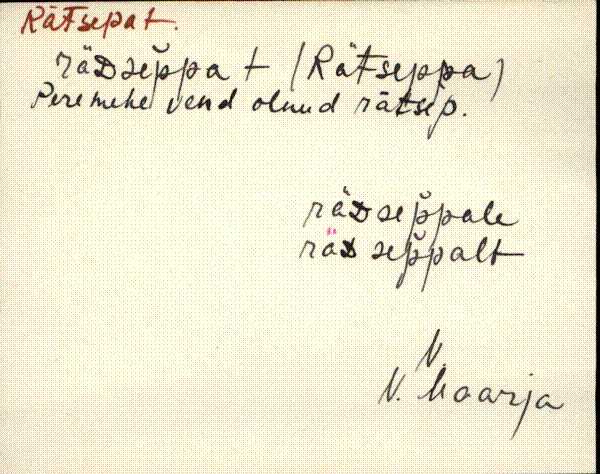 Rätsepat.
räDsep̆pa t (Rätseppa)
Peremehe vend olnud rätsep.
räDsep̆pale
räDsep̆palt
V.
V. Maarja